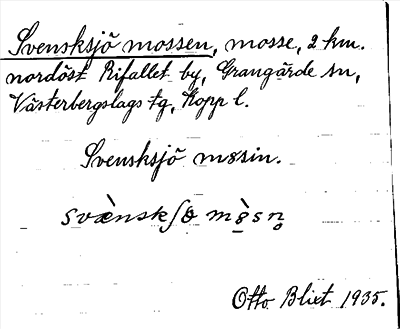 Svensksjö mossen, mosse, 2 km.
nordöst Rifallet by, Grangärde sn,
Västerbergslags tg, Kopp l.
Svensksjö mosin.
svæ̀nskʃɵ mò̤sn̥
Otto Blixt 1935.